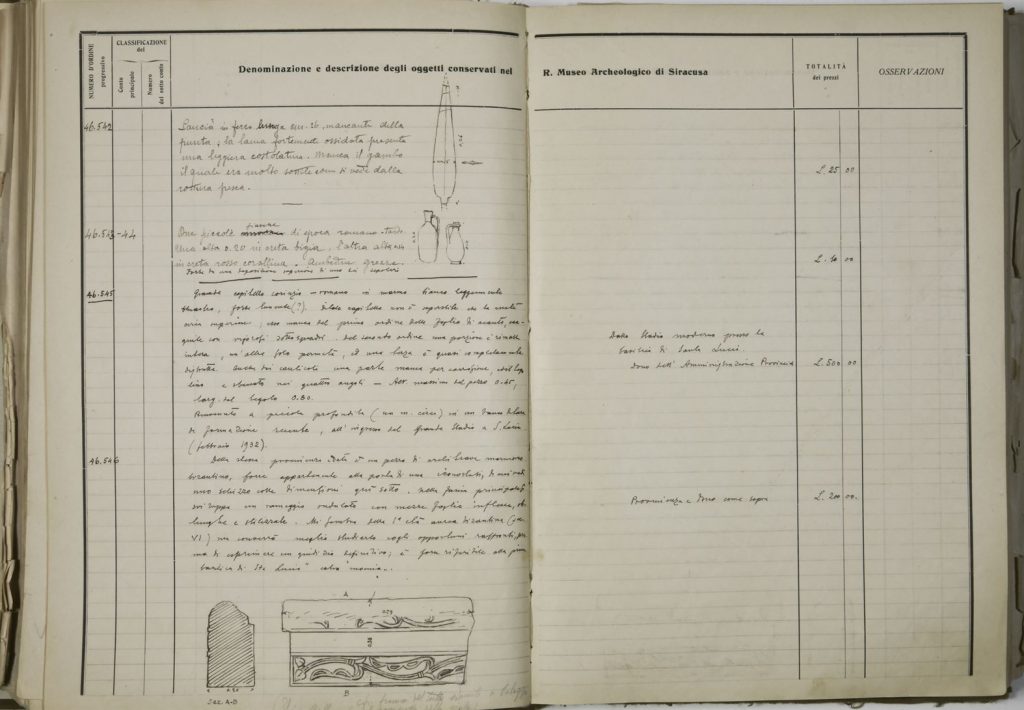 NUMERO D'ORDINE
progressivo
CLASSIFICAZIONE
del
Conto
principale
Numero
del sotto conto
Denominazione e descrizione degli oggetti conservati nel
R. Museo Archeologico di Siracusa
TOTALITÀ
dei prezzi
OSSERVAZIONI
46.542
Lancia in ferro lunga cm. 26, mancante della
punta; la lama fortemente ossidata presenta
una leggiera costolatura. Manca il gambo
il quale era molto sottile come si vede dalla
rottura fresca.
L. 25 00
46.543-44
Due piccole
di epoca romano-tarda
Una alta 0.20 in creta bigia, l'altra alta
in creta rosso corallina. Ambedue grezze.
Forse da una deposizione
L. 10 00
46.545
Grande capitello corinzio-romano in marmo bianco leggermente
bluastro, forse lunense (?). Di tale capitello non è superstite che la metà
circa superiore; esso manca del primo ordine delle foglie di acanto,
del secondo ordine una porzione è rimasta
intera, un'altra foto permuta, ed una terza è quasi completamente
distrutta. Anche dei caulicoli una parte manca per corrosione,
e sbocato nei quattro angoli - Alt. massima del pezzo 0.45,
larg. del 0.80.
Rinvenuto a piccola profondità (un m. circa) in un banco
di formazione recente, all'ingresso del Grande Stadio a S. Lucia
(febbraio 1932).
Dallo Stadio moderno presso la
basilica di Santa Lucia.
Dono dell'Amministrazione Provincia
L. 500 00
46.546
Della stessa provenienza è un pezzo di architrave marmoreo
bizantino, forse appartenente alla porta di una iconostasi, di cui
uno schizzo colle dimensioni qui sotto. Nella fascia principale si
sviluppa un rameggio ondulato con mezze foglie inflesse,
lunghe e stilizzate. Mi sembra della 1ª età aurea bizantina (sec.
VI) ma converrà meglio studiarlo cogli opportuni raffronti,
ma di esprimere un giudizio definitivo; è forse riferibile alla prima
basilica di Sta Lucia
Provenienza e dono come sopra
L. 200 00.
A
B
Sez. A-B